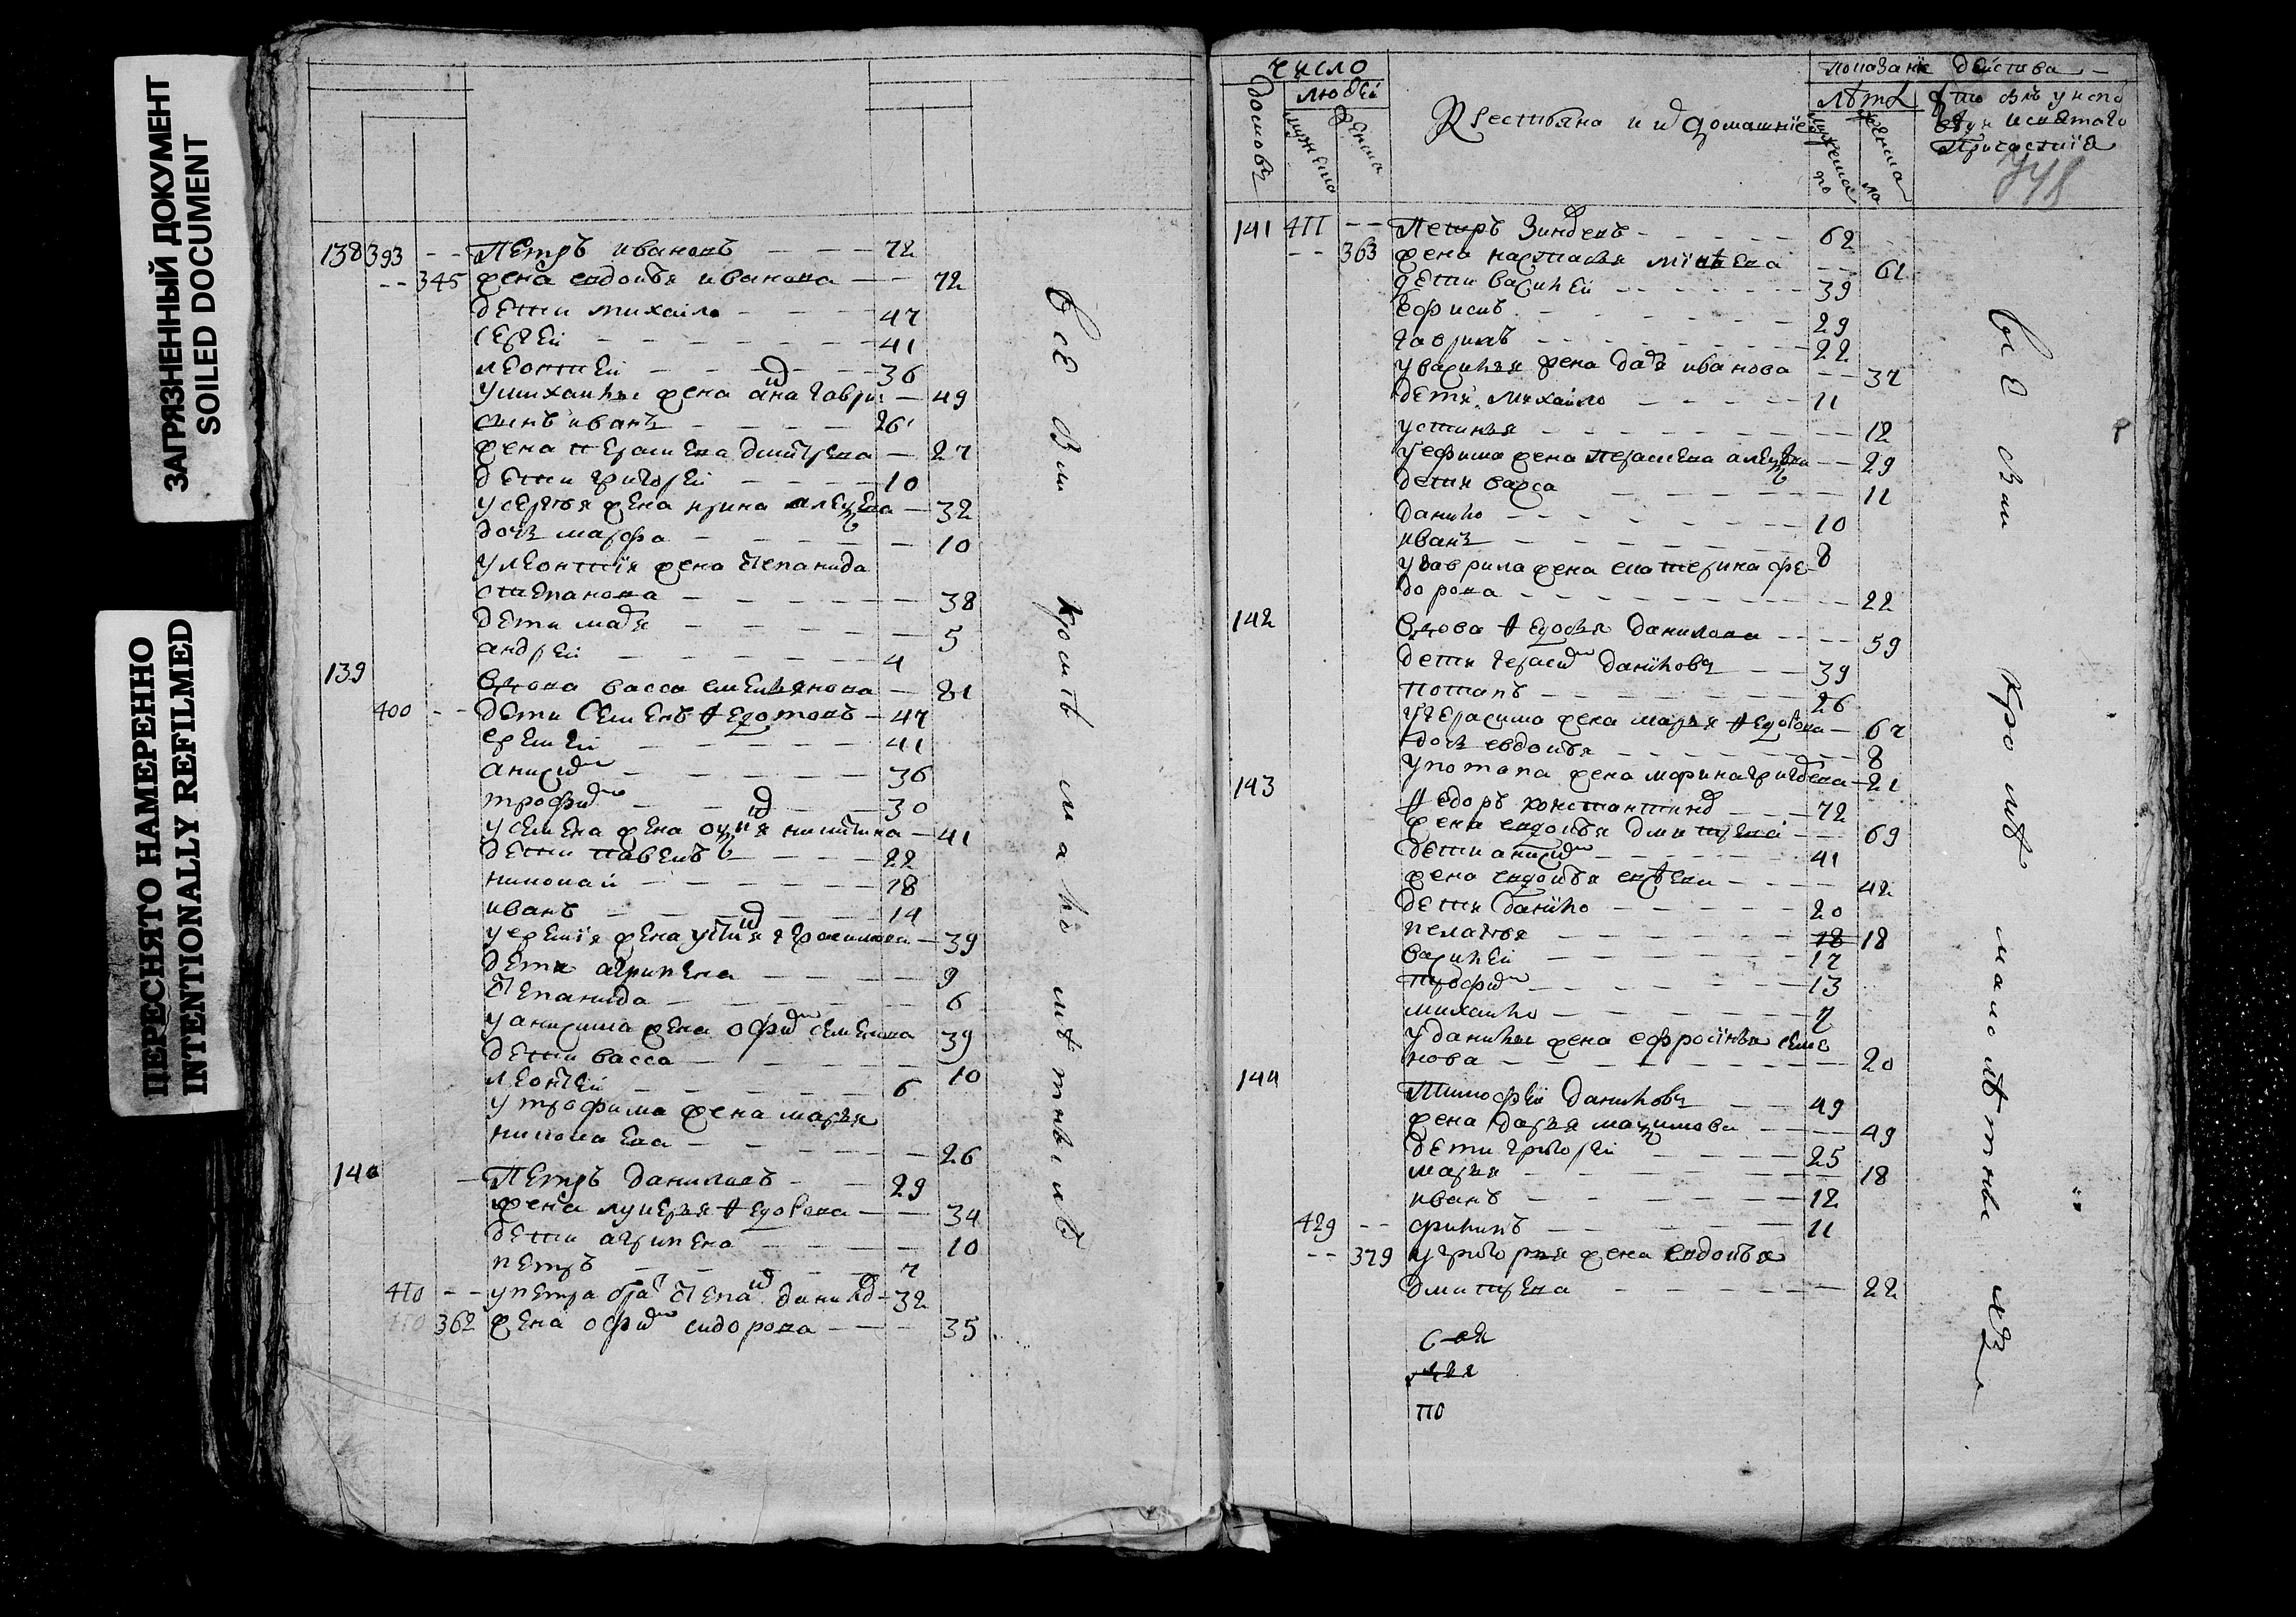 ЗАГРЯЗНЕННЫЙ ДОКУМЕНТ
SOILED DOCUMENT
ПЕРЕСНЯТО НАМЕРЕННО
INTENTIONALLY REFILMED
138 393 -- Петръ ивановъ 72
-- 345 жена евдокѣя иванова 72
дети михаило 47
сергеи 41
леонтеи 36
у михаилы жена ана гаври 49
сынъ иванъ 26
жена парасковея дмитрева 27
дети григореи 10
у сергѣя жена ирина алеѯева 32
дочь марфа 10
у леонтїя жена степанида
степанова 38
дети марѳа 5
андреи 4
139 вдова васса емельянова 81
400 -- дети семенъ ѳедотовъ 47
еремеи 41
анисим 36
трофим 30
у семена жена никитина 41
дети павелъ 22
николаи 18
иванъ 14
у еремїя жена устиня герасимова 39
дети агрипена 9
степанида 6
у анисима жена офим семенова 39
дети васса 10
леонтеи 6
у трофима жена марья
николаева 26
140 Петръ даниловъ 29
жена лукерья ѳедорова 34
дети агрипена 10
петръ 7
410 -- у петра бра степа данило 32
362 жена офим сидорова 35
все зти кроме малолѣтныхъ
число
людеи
домовъ
мужеска
женска
Крестьяня и и домашнїе
показанїе деиства
лѣта
мужеска по
женска по
кто былъ у испо
веди и святаго
Причастїя
348
141 411 -- Петръ Зиновевъ 62
-- 363 жена настасья минѣева 61
дети василеи 39
ефимъ 29
гаврилъ 22
у василья жена дарья иванова 37
дети михаило 11
устинья 12
у ефима жена парасковея алеѯеева 29
дети васса 11
данило 10
иванъ 8
у гаврила жена екатерина фе
дорова 22
142 вдова ѳедосья данилова 59
дети герасим даниловъ 39
потапъ 26
у герасима жена марья ѳедорова 67
дочь евдокѣя 8
у потапа жена марина григорева 21
143 ѳедоръ константино 72
жена евдокѣя дмитрева 69
дети анисим 41
жена евдокѣя 42
дети данило 20
пелагѣя 18 18
василеи 17
трофим 13
михаило 7
у данилы жена ефросїнья семе
нова 20
144 Тимофеи даниловъ 49
жена дарья маѯимова 49
дети григореи 25
марья 18
иванъ 12
429 -- филипъ 11
-- 379 у григорья жена евдокѣя
дмитрева 22
по
все зти кроме малолѣтныхъ